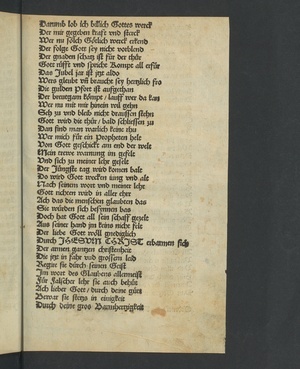 Darumb lob ich billich Gottes werck
Der mir gegeben kraft vnd sterck
Wer nu sölch Götlich werck erkend
Der folge Gott sey nicht verblend
Der gnaden schatz ist für der thür
Gott rüfft vnd spricht Kompt all erfür
Das Jubel jar ist jtz aldo
Wers gleubt vñ braucht sey hertzlich fro
Die gulden Pfort ist auffgethan
Der breutgam kömpt / lauff wer da kan
Wer nu mit mir hinein wil gehn
Seh zu vnd bleib nicht draussen stehn
Gott wird die thür / bald schliessen zu
Dan sind man warlich keine rhu
Wer mich für ein Propheten helt
Von Gott geschickt am end der welt
Mein trewe warnung im gefelt
Vnd sich zu meiner lehr geselt
Der Jüngste tag wird komen bald
Do wird Gott wecken jung vnd alt
Nach seinem wort vnd meiner lehr
Gott richten wird in aller ehr
Ach das die menschen glaubten das
Sie würden sich besynnen bas
Doch hat Gott all sein schaff gezelt
Aus seiner hand jm keins nicht felt
Der liebe Gott wöll gnediglich
Durch JHESVM CHRIST erbarmen sich
Der armen gantzen christenheit
Die jtzt in fahr vnd grossem leid
Regier sie durch seinen Geist
Im wort des Glaubens allermeist
Für falscher lehr sie auch behüt
Ach lieber Gott / durch deine güt
Bewar sie stetz in einigkeit
Durch deine gros Barmhertzigkeit